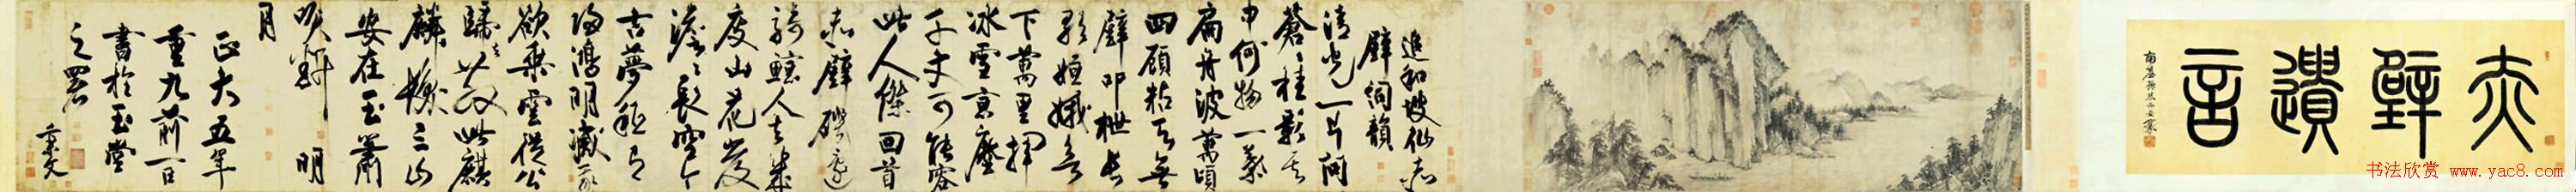 赤壁遺言
追和坡仙赤
壁詞韻
清光一片問
蒼〻桂影其
中何物一葉
扁舟波萬頃
四顧粘天無
壁叩枻長
歌姮娥欲
下萬里揮
冰雪京塵
千丈可能容
此人傑回首
赤壁磯邊
騎鯨人去幾
度山花發
澹〻長空今
古夢秖有
歸鴻明滅我
欲乘雲從公
歸去散此麒
麟髮三山
安在玉簫
吹斷明
月
正大五年
重九前一日
書於玉堂
之署
秉文
书法欣赏 www.yac8.com